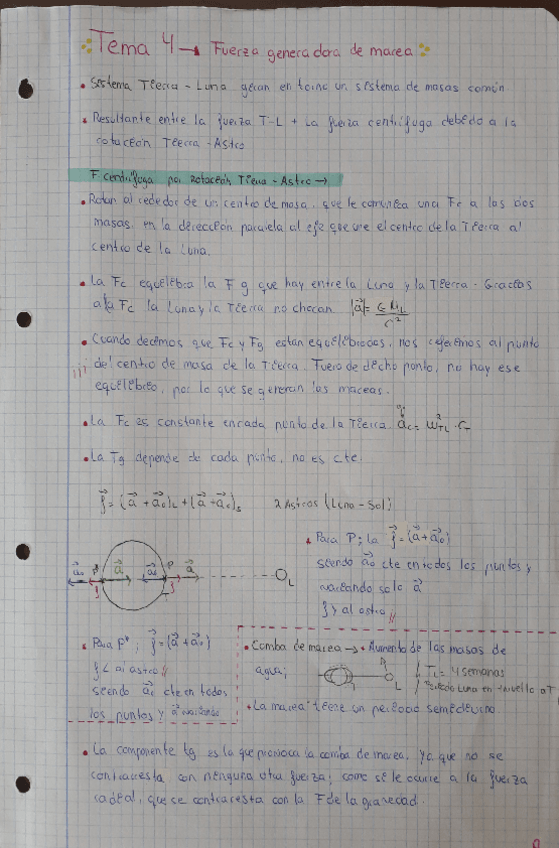 Tema 4 → Fuerza generadora de marea
• Sistema Tierra - Luna giran en torno un sistema de masas común
• Resultante entre la fuerza T-L + la fuerza centrífuga debido a la
rotación Tierra-Astro
F centrífuga por rotación Tierra-Astro →
• Rotan al rededor de un centro de masa, que le comunica una Fc a las dos
masas, en la dirección paralela al eje que une el centro de la Tierra al
centro de la Luna.
• La Fc equilibra la Fg que hay entre la Luna y la Tierra - Gracias
a la Fc la Luna y la Tierra no chocan
• Cuando decimos que Fc y Fg estan equilibradas, nos referimos al punto
¡¡¡ del centro de masa de la Tierra. Fuera de dicho punto, no hay ese
equilibrio, por lo que se generan las mareas.
• La Fc es constante en cada punto de la Tierra.
• La Tg depende de cada punto, no es cte.
f = (a + a₀)L + (a + a₀)s 2 Astros (Luna - Sol)
• Para P; la f = (a + a₀)
siendo a₀ cte en todos los puntos y
variando solo a
f > al astro //
P' P L
• Para P'; f = (a + a₀)
f < al astro //
siendo a₀ cte en todos
los puntos y a variando
• Comba de marea → Aumento de las masas de
agua;
L
TL = 4 semanas
• La marea tiene un periodo semidiurno.
• La componente tg es la que provoca la comba de marea, ya que no se
contraresta con ninguna otra fuerza; como si le ocurre a la fuerza
radial, que se contraresta con la F de la gravedad.